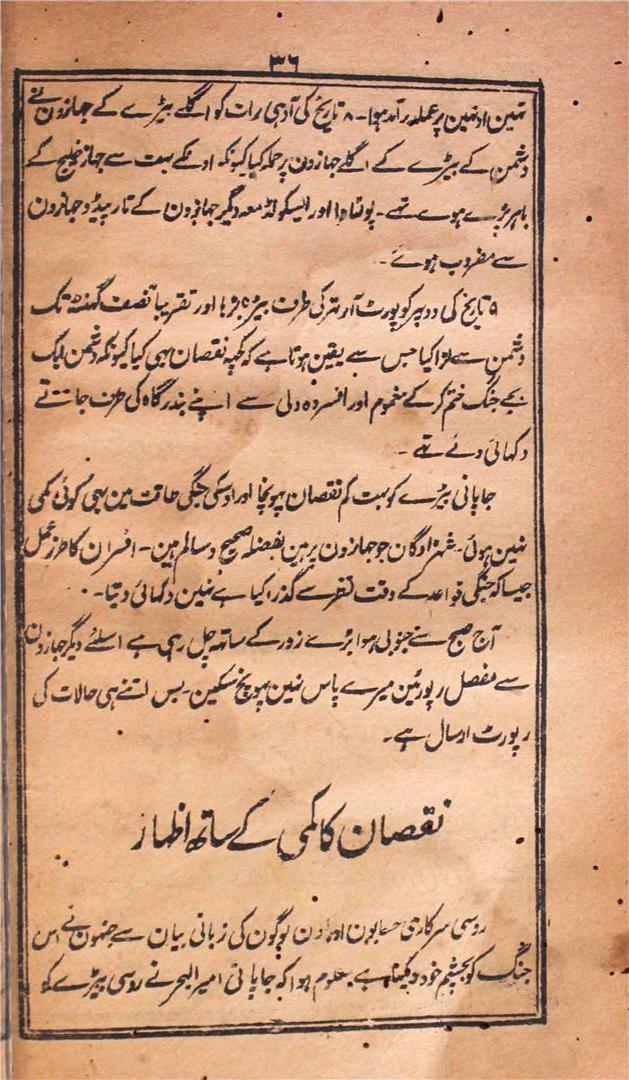 ٣٦
تہین اونہین پر عملدرآمد ہوا۔ ۸ تاریخ کی آدہی رات کو اگلے بیڑے کے جہازون نے
دشمن کے بیڑے کے اگلے جہازون پر حملہ کیا کیونکہ اونکے بہت سے جہاز خلیج کے
باہر پڑے ہوے تہے۔ پولٹاوا اور ایسکولڈ معہ دیگر جہازون کے تارپیڈو جہازون
سے مضروب ہوے۔
۹ تاریخ کی دوپہر کو پورٹ آرتہر کی طرف بیڑہ بڑہا اور تقریباً نصف گہنٹہ تک
دشمن سے لڑا کیا جس سے یقین ہوتا ہے کہ کچہہ نقصان بہی کیا کیونکہ دشمن ایک
بجے جنگ ختم کرکے مغموم اور افسردہ دلی سے اپنے بندرگاہ کی طرف جاتے
دکہائی دئے تہے۔
جاپانی بیڑے کو بہت کم نقصان پہونچا اور اوسکی جنگی طاقت مین بہی کوئی کمی
نہین ہوئی۔ شہزادگان جو جہازون پر ہین بفضلہ صحیح و سالم ہین۔ افسران کا طرز عمل
جیسا کہ جنگی قواعد کے وقت نظر سے گذرا کیا ہے نہین دکہائی دیتا۔
آج صبح سے جنوبی ہوا بڑے زور کے ساتہہ چل رہی ہے اسلئے دیگر جہازون
سے مفصل رپورٹین میرے پاس نہین پہونچ سکین۔ بس اتنے ہی حالات کی
رپورٹ ارسال ہے۔
نقصان کا کمی کے ساتھ اظہار
روسی سرکاری حسابون اور اون لوگون کی زبانی بیان سے جنہون نے اس
جنگ کو بچشم خود دیکہا ہے۔ معلوم ہوا کہ جاپانی امیر البحر نے روسی بیڑے کو